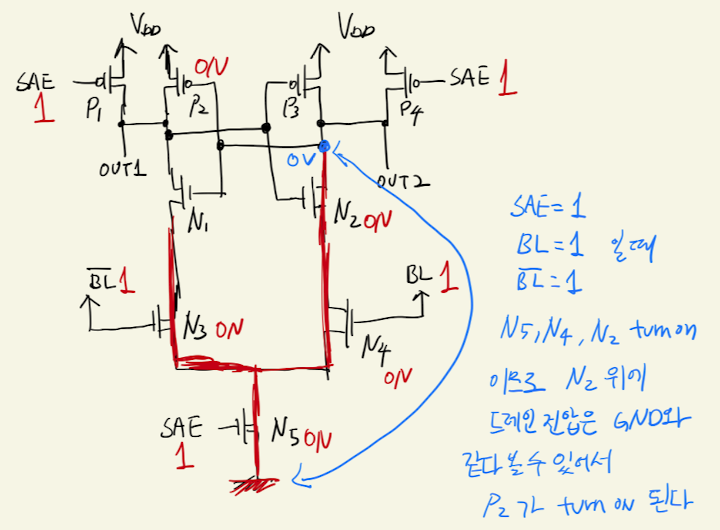 V_DD V_DD
SAE 1 P1 P2 ON P3 P4 SAE 1
OUT1 0V OUT2
N1 N2 ON
B̅L̅ 1 N3 ON BL 1 N4 ON
SAE 1 N5 ON
SAE=1
BL=1 일때
B̅L̅=1
N5, N4, N2 turn on
이므로 N2 위에
드레인 전압은 GND와
같다 볼 수 있어서
P2가 turn on 된다